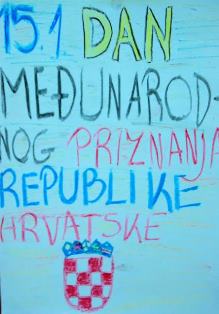 15.1 DAN
MEĐUNAROD-
NOG PRIZNANJA
REPUBLIKE
HRVATSKE